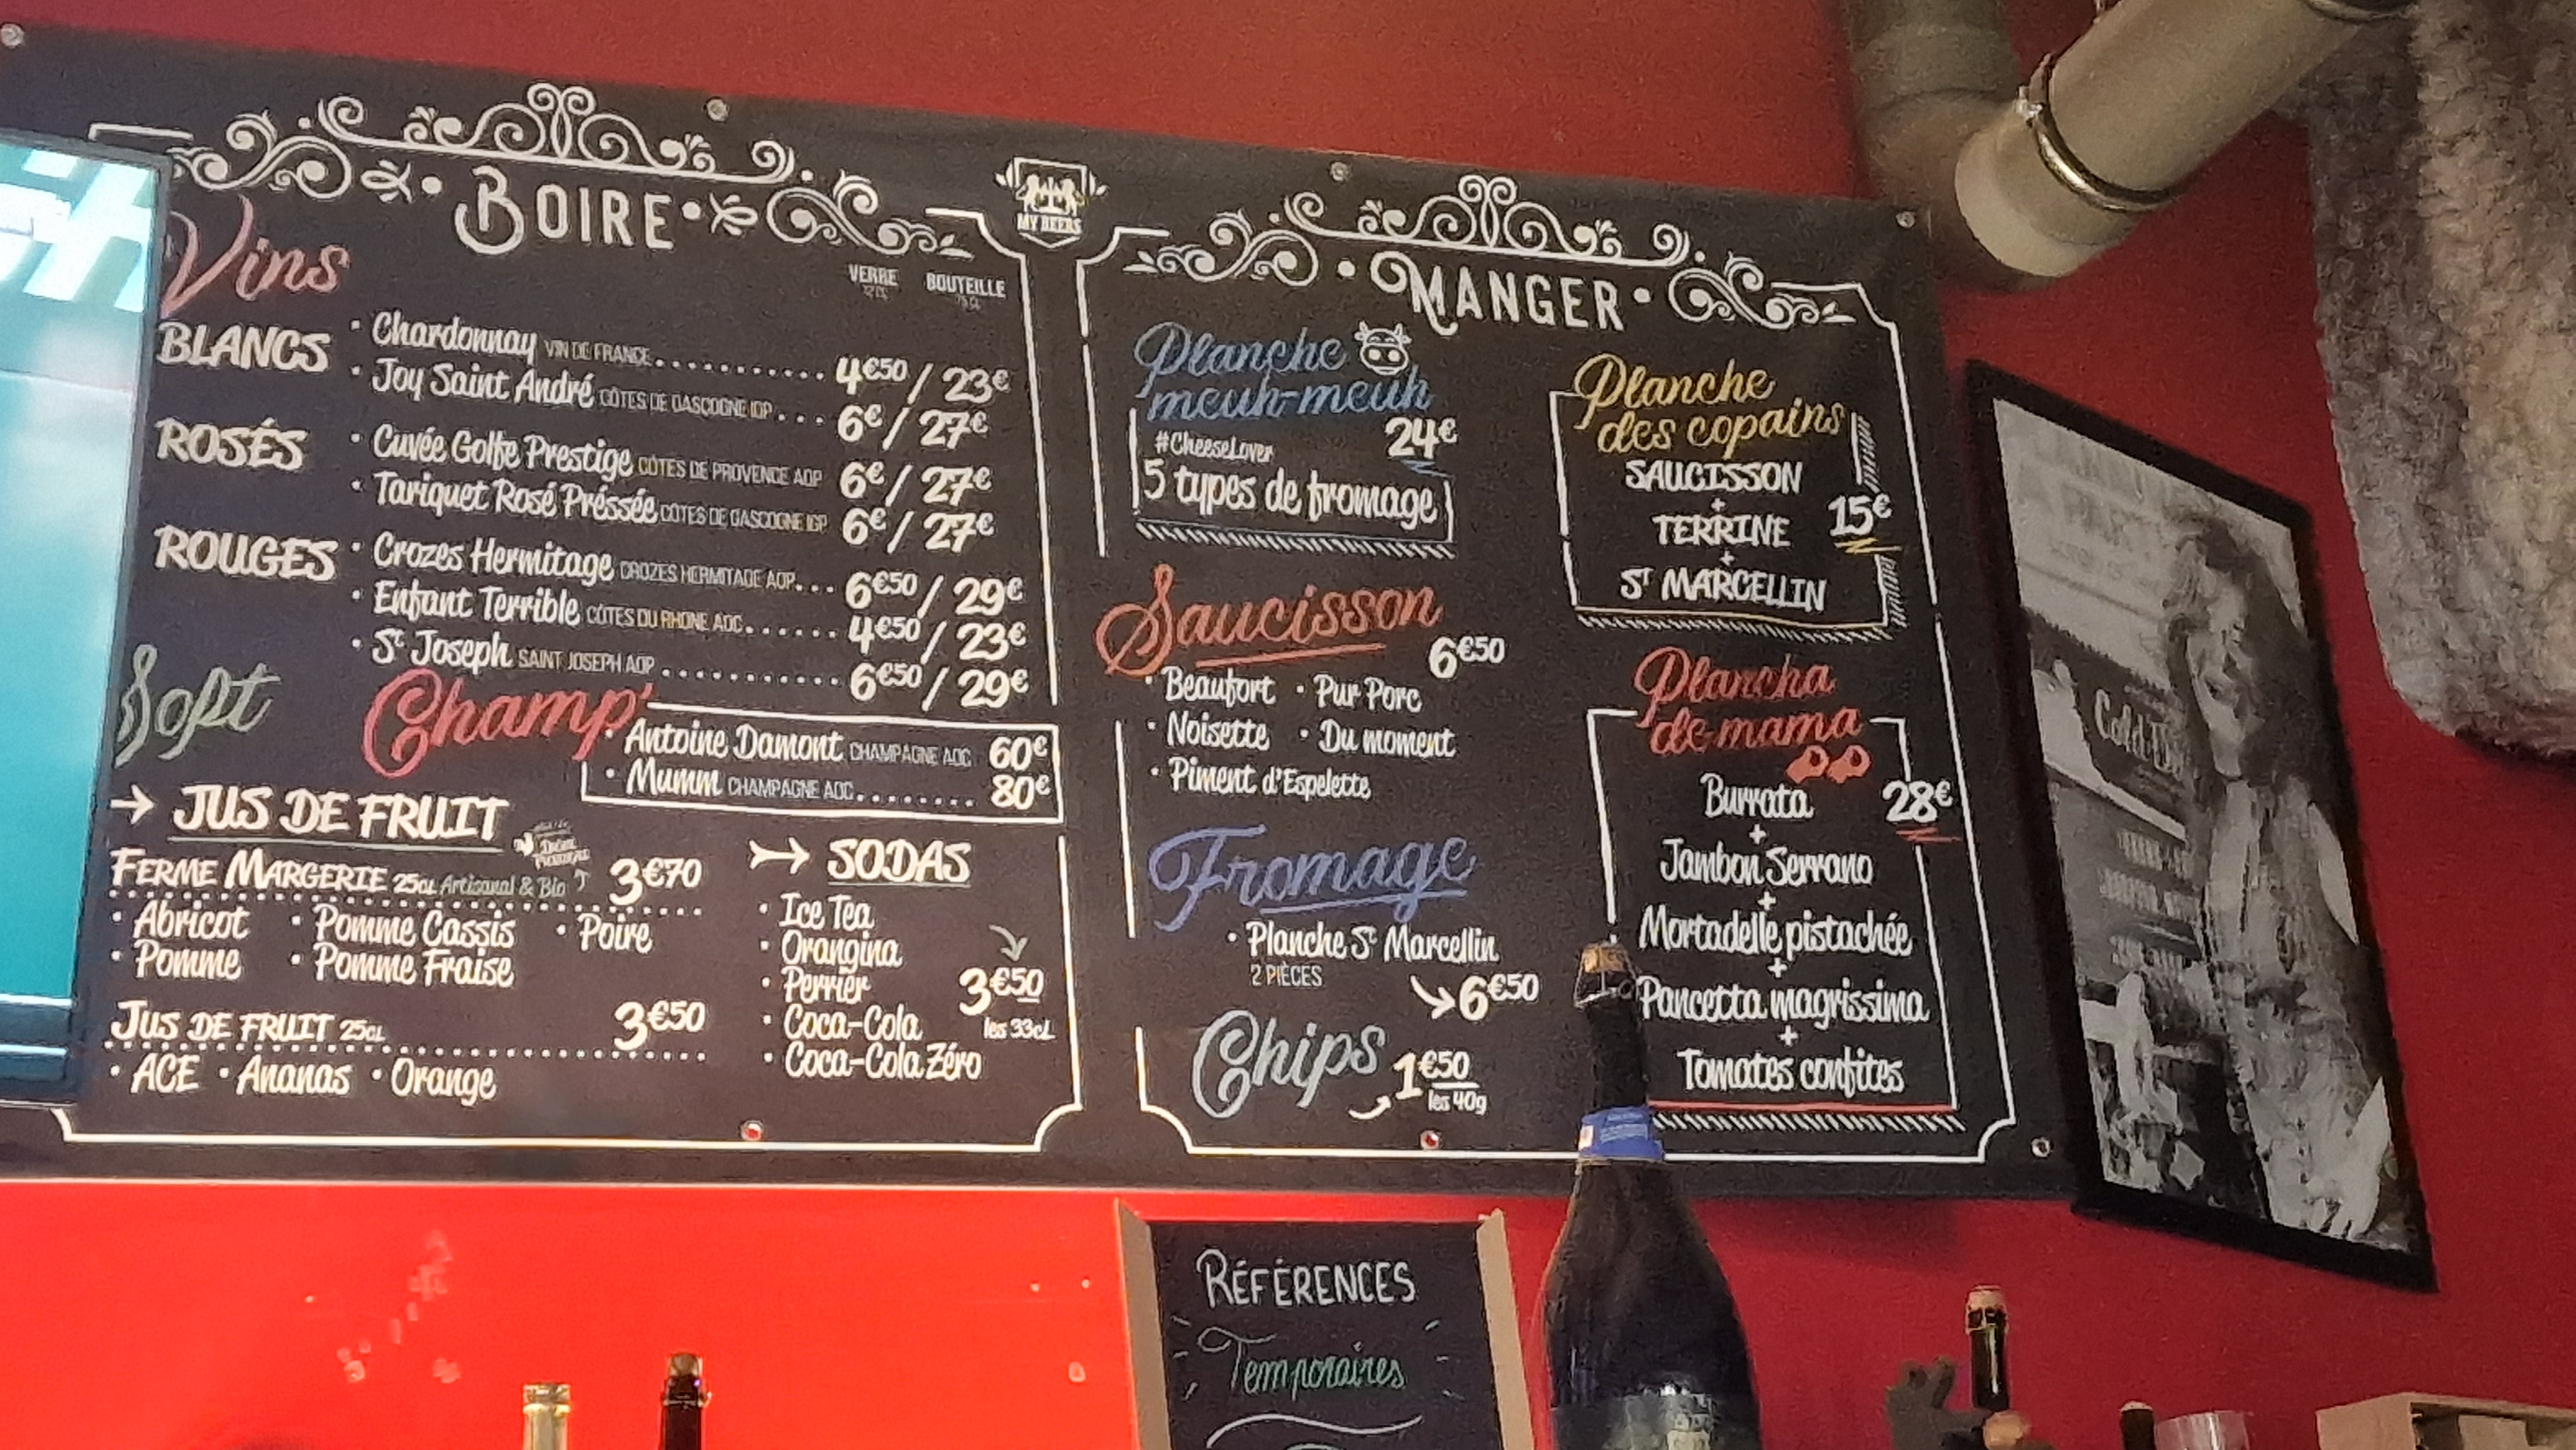 BOIRE
MY BEERS
Vins
VERRE BOUTEILLE
BLANCS
· Chardonnay VIN DE FRANCE............ 4€50 / 23€
· Joy Saint André CÔTES DE GASCOGNE IGP... 6€ / 27€
ROSÉS
· Cuvée Golfe Prestige CÔTES DE PROVENCE AOP 6€ / 27€
· Tariquet Rosé Préssée CÔTES DE GASCOGNE IGP 6€ / 27€
ROUGES
· Crozes Hermitage CROZES HERMITAGE AOP... 6€50 / 29€
· Enfant Terrible CÔTES DU RHONE AOC...... 4€50 / 23€
· St Joseph SAINT JOSEPH AOP ........... 6€50 / 29€
Champ'
· Antoine Damont CHAMPAGNE AOC 60€
· Mumm CHAMPAGNE AOC........ 80€
Soft
→ JUS DE FRUIT
FERME MARGERIE 25CL Artisanal & Bio 3€70
· Abricot · Pomme Cassis · Poire
· Pomme · Pomme Fraise
JUS DE FRUIT 25CL 3€50
· ACE · Ananas · Orange
→ SODAS
· Ice Tea
· Orangina
· Perrier
· Coca-Cola
· Coca-Cola Zéro
3€50
les 33cL
MANGER
Planche
meuh-meuh
24€
#CheeseLover
5 types de fromage
Saucisson
6€50
· Beaufort · Pur Porc
· Noisette · Du moment
· Piment d'Espelette
Fromage
· Planche St Marcellin
2 PIÈCES
6€50
Chips
1€50
les 40g
Planche
des copains
SAUCISSON
+
TERRINE
+
ST MARCELLIN
15€
Plancha
de mama
28€
Burrata
+
Jambon Serrano
+
Mortadelle pistachée
+
Pancetta magrissima
+
Tomates confites
RÉFÉRENCES
Temporaires